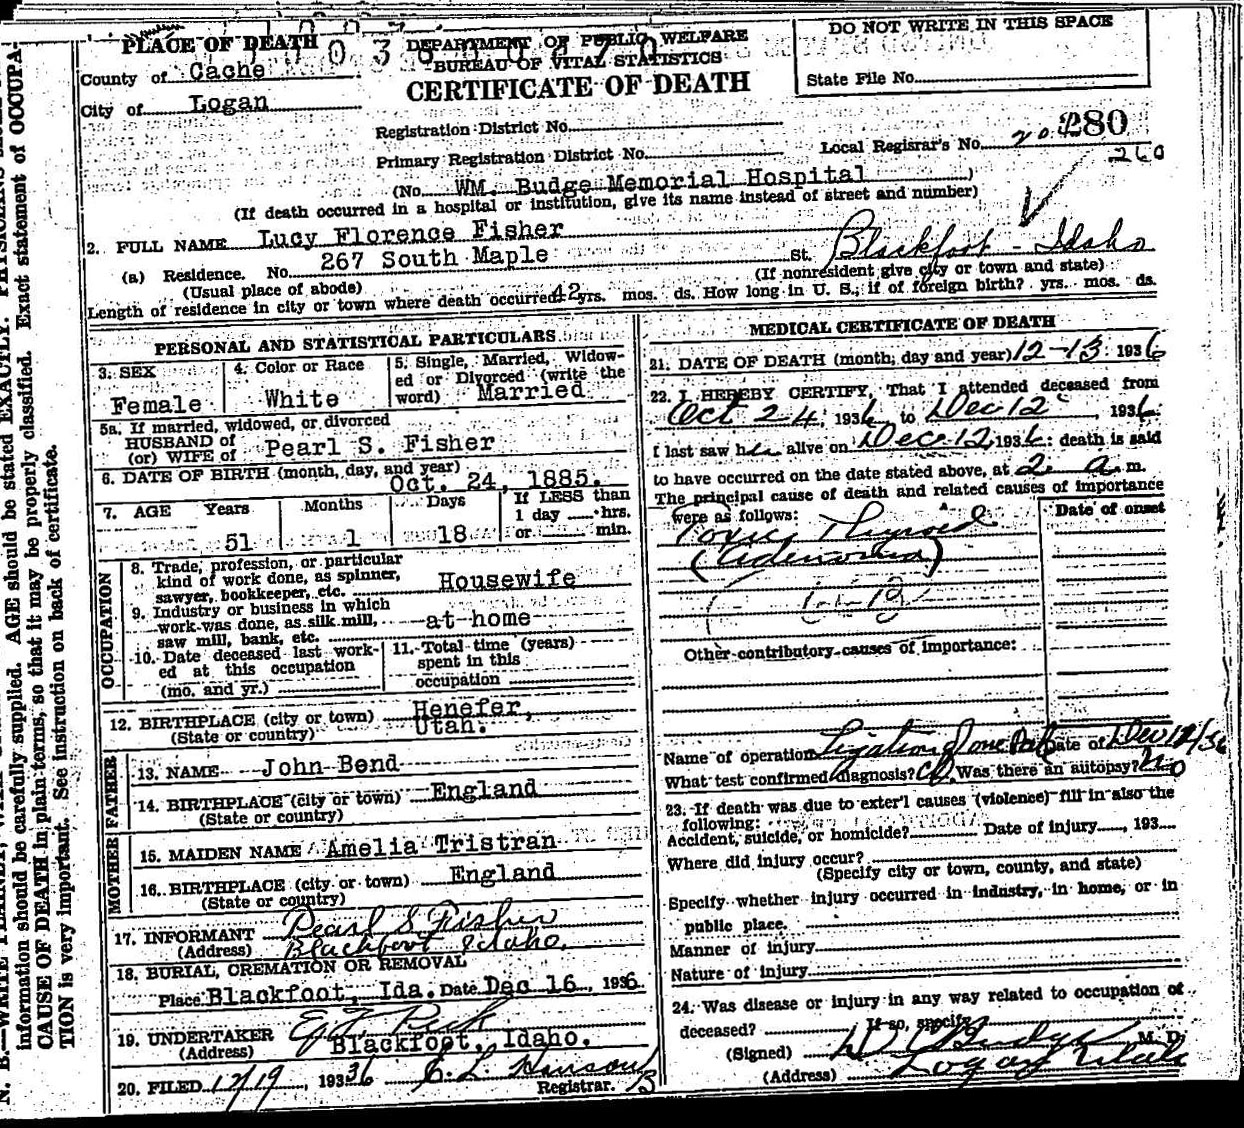 PLACE OF DEATH
County of Cache
City of Logan
DEPARTMENT OF PUBLIC WELFARE
BUREAU OF VITAL STATISTICS
CERTIFICATE OF DEATH
DO NOT WRITE IN THIS SPACE
State File No.
Registration District No.
Primary Registration District No.
Local Registrar's No. 280
260
(No. WM. Budge Memorial Hospital )
(If death occurred in a hospital or institution, give its name instead of street and number)
2. FULL NAME Lucy Florence Fisher
(a) Residence. No. 267 South Maple St. Blackfoot - Idaho
(Usual place of abode) (If nonresident give city or town and state)
Length of residence in city or town where death occurred 42 yrs. mos. ds. How long in U. S., if of foreign birth? yrs. mos. ds.
PERSONAL AND STATISTICAL PARTICULARS
3. SEX
Female
4. Color or Race
White
5. Single, Married, Widow-
ed or Divorced (write the
word) Married
5a. If married, widowed, or divorced
HUSBAND of
(or) WIFE of Pearl S. Fisher
6. DATE OF BIRTH (month, day, and year)
Oct. 24, 1885.
7. AGE Years Months Days If LESS than
1 day hrs.
51 1 18 or min.
OCCUPATION
8. Trade, profession, or particular
kind of work done, as spinner,
sawyer, bookkeeper, etc. Housewife
9. Industry or business in which
work was done, as silk mill, at home
saw mill, bank, etc.
10. Date deceased last work-
ed at this occupation
(mo. and yr.)
11. Total time (years)
spent in this
occupation
12. BIRTHPLACE (city or town) Henefer,
(State or country) Utah.
FATHER
13. NAME John Bond
14. BIRTHPLACE (city or town) England
(State or country)
MOTHER
15. MAIDEN NAME Amelia Tristran
16. BIRTHPLACE (city or town) England
(State or country)
17. INFORMANT Pearl S. Fisher
(Address) Blackfoot Idaho.
18. BURIAL, CREMATION OR REMOVAL
Place Blackfoot, Ida. Date Dec 16, 1936.
19. UNDERTAKER
(Address) Blackfoot, Idaho.
20. FILED 12/19, 1936 Registrar.
MEDICAL CERTIFICATE OF DEATH
21. DATE OF DEATH (month, day and year) 12-13 1936
22. I HEREBY CERTIFY, That I attended deceased from
Oct 24, 1936 to Dec 12, 1936
I last saw her alive on Dec 12, 1936: death is said
to have occurred on the date stated above, at 2 a m.
The principal cause of death and related causes of importance
were as follows: Date of onset
Toxic Thyroid
(Adenoma)
Other contributory causes of importance:
Name of operation Ligation Date of Dec 12/36
What test confirmed diagnosis? Was there an autopsy? no
23. If death was due to exter'l causes (violence) fill in also the
following:
Accident, suicide, or homicide? Date of injury , 193
Where did injury occur?
(Specify city or town, county, and state)
Specify whether injury occurred in industry, in home, or in
public place.
Manner of injury
Nature of injury
24. Was disease or injury in any way related to occupation of
deceased? If so, specify
(Signed) Budge M. D.
(Address) Logan Utah
information should be carefully supplied. AGE should be stated EXACTLY.
CAUSE OF DEATH in plain terms, so that it may be properly classified. Exact statement of OCCUPA-
TION is very important. See instruction on back of certificate.